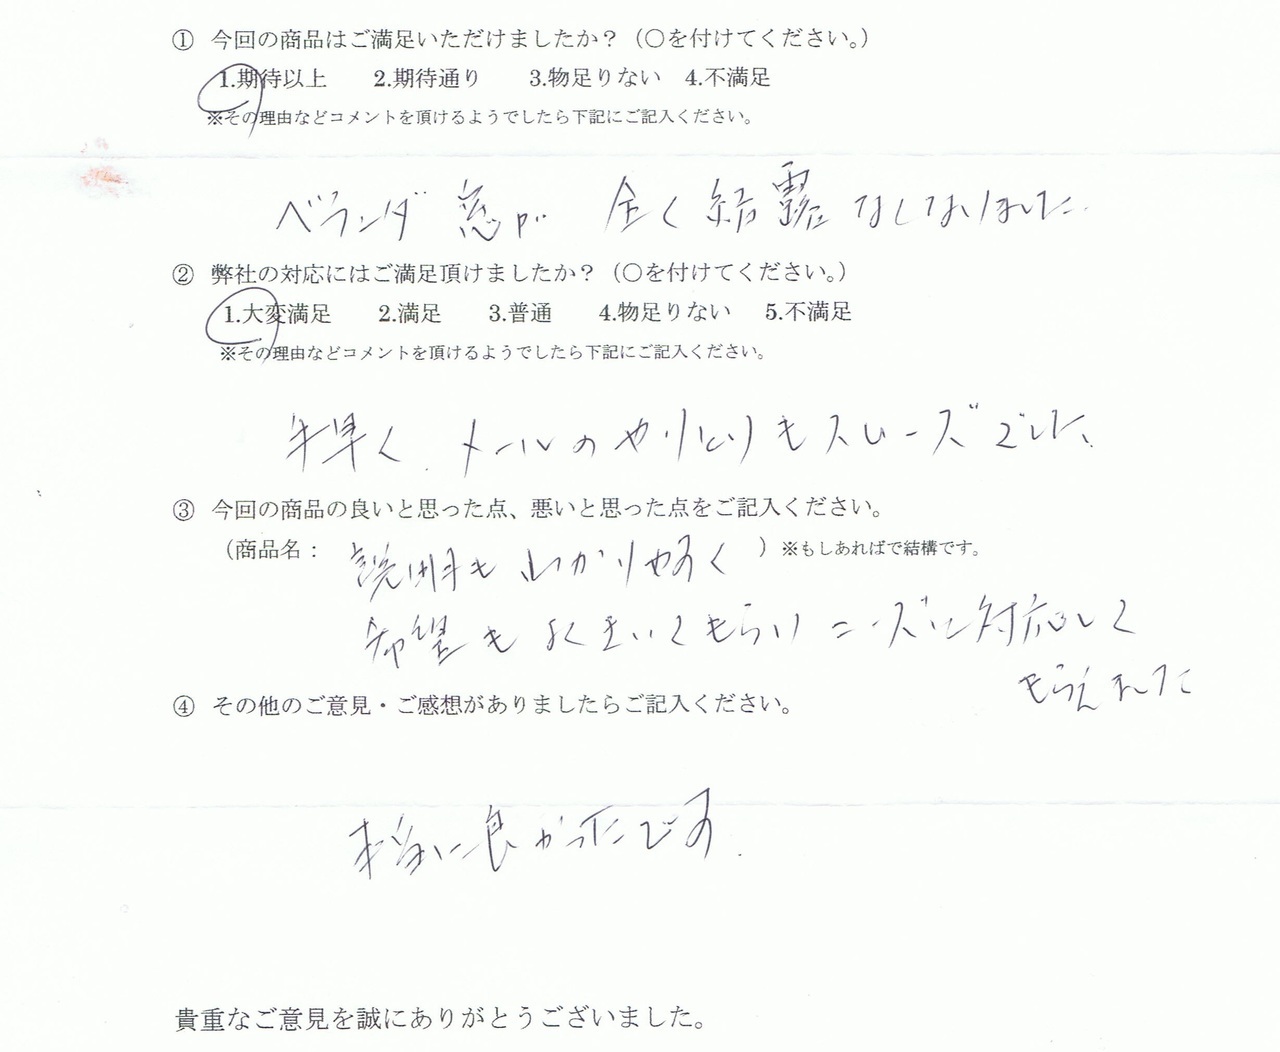 ① 今回の商品はご満足いただけましたか？（○を付けてください。）
1.期待以上 2.期待通り 3.物足りない 4.不満足
※その理由などコメントを頂けるようでしたら下記にご記入ください。
ベランダ窓が 全く結露なしなりました
② 弊社の対応にはご満足頂けましたか？（○を付けてください。）
1.大変満足 2.満足 3.普通 4.物足りない 5.不満足
※その理由などコメントを頂けるようでしたら下記にご記入ください。
手早く、メールのやりとりもスムーズでした。
③ 今回の商品の良いと思った点、悪いと思った点をご記入ください。
（商品名： 説明もわかりやすく ）※もしあればで結構です。
希望もよくきいてもらいニーズに対応して
もらえました
④ その他のご意見・ご感想がありましたらご記入ください。
本当に良かったです.
貴重なご意見を誠にありがとうございました。